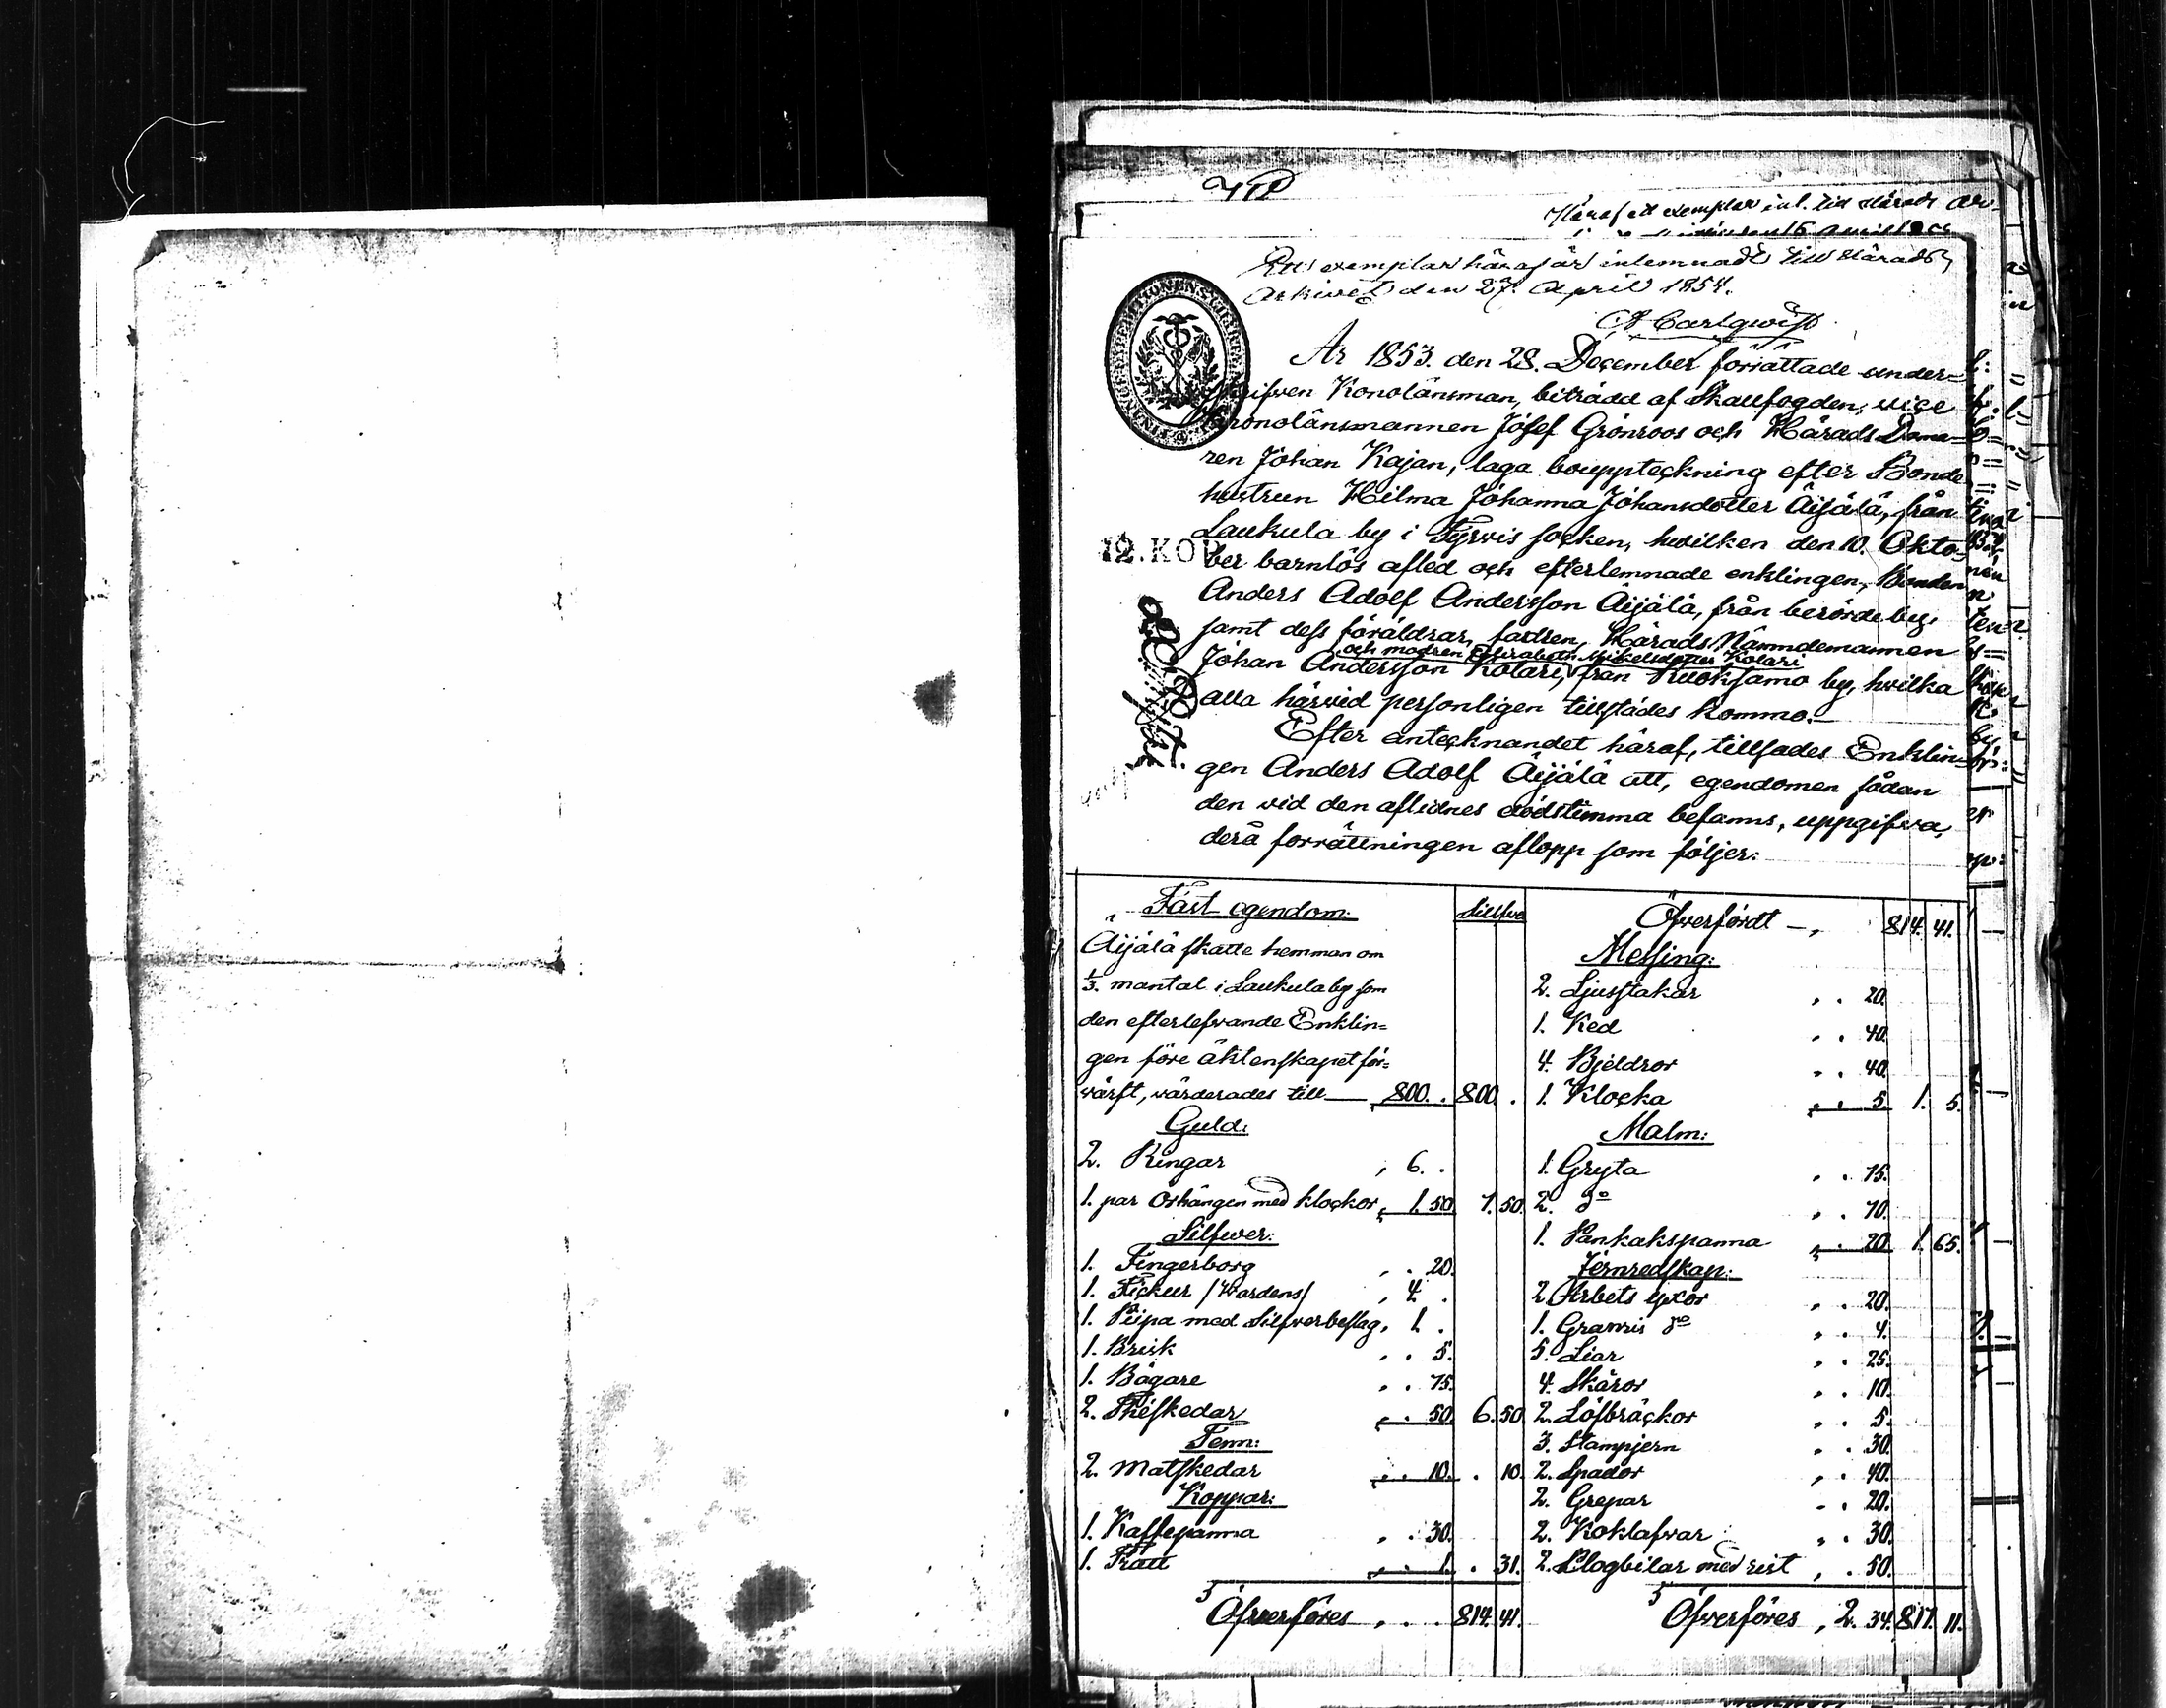 Häraf ett exemplar inl. till Härads Ar-
Ett exemplar häraf är inlemnadt till Härads
Arkivet den 27. April 1854.
CA Carlqwist
År 1853. den 28. December förrättade under-
skrifven Kronolänsman, biträdd af Skallfogden, vice
Kronolänsmannen Josef Grönroos och Härads Doma-
ren Johan Kajan, laga bouppteckning efter Bonde
hustrun Hilma Johanna Johansdotter Äijälä, från
Laukula by i Tyrvis socken, hvilken den 10. Okto-
ber barnlös afled och efterlemnade enklingen, Bonden
Anders Adolf Andersson Äijälä, från berörde by,
samt dess föräldrar, fadren, Härads Nämndemannen
och modren Elisabeth Mikelsdotter Kolari
Johan Andersson Kolari, från Kuoksamo by, hvilka
alla härvid personligen tillstädes kommo.
Efter antecknandet häraf, tillsades Enklin-
gen Anders Adolf Äijälä att, egendomen sådan
den vid den aflidnes dödstimma befanns, uppgifva,
derå förrättningen aflopp som följer:
12. KOP
Fast egendom: Silfver
Äijälä skatte hemman om
1/3. mantal i Laukula by som
den efterlefvande Enklin=
gen före äktenskapet för=
värft, värderades till — 800. . 800. .
Guld:
2. Ringar , 6. .
1. par Örhängen med klockor , 1. 50. 7. 50.
Silfwer:
1. Fingerborg , . 20.
1. Fickur /Vardens/ , 4 .
1. Pipa med Silfverbeslag , 1. .
1. Brisk , . 5.
1. Bägare , . 75.
2. Théskedar , . 50. 6. 50.
Tenn:
2. Matskedar , . 10. . 10.
Koppar:
1. Kaffepanna , . 30.
1. Tratt , . 1. . 31.
Öfverföres , . . 814. 41.
Öfverfördt —, 814. 41.
Messing:
2. Ljusstakar , . 20.
1. Ked . . 40.
4. Bjeldror , . 40.
1. Klocka , . 5. 1. 5.
Malm:
1. Gryta , . 75.
2. do , . 70.
1. Pankakspanna , . 20. 1. 65.
Jernredskap:
2. Arbets yxor , . 20.
1. Granris do , . 4.
5. Liar , . 25.
4. Skäror , . 10.
2. Löfbräckor , . 5.
3. Stampjern , . 30.
2. Spador , . 40.
2. Grepar , . 20.
2. Koklafvar , . 30.
2. Plogbilar med rist , . 50.
Öfverföres , 2. 34. 817. 11.